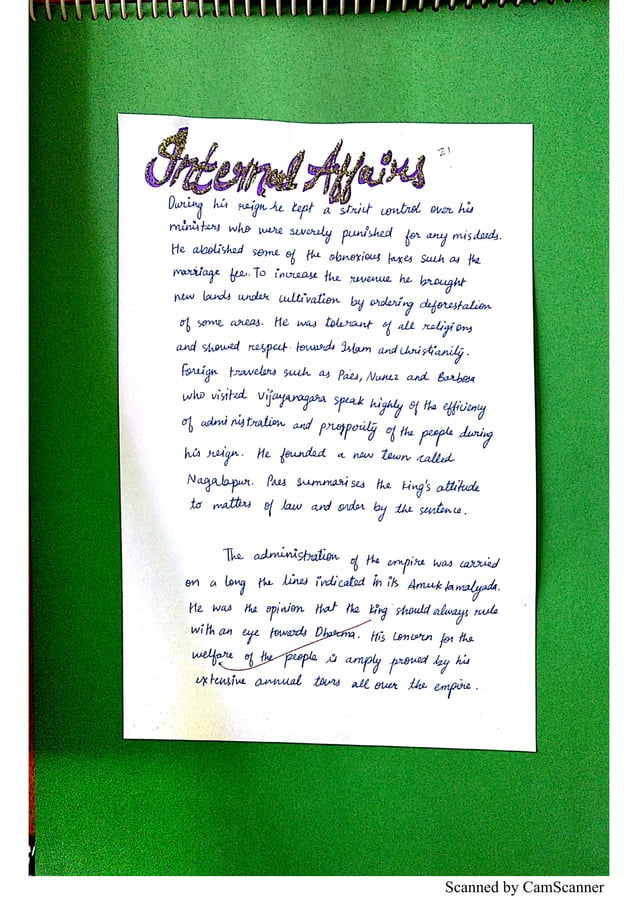 Internal Affairs
21
During his reign he kept a strict control over his
ministers who were severely punished for any misdeeds.
He abolished some of the obnoxious taxes such as the
marriage fee. To increase the revenue he brought
new lands under cultivation by ordering deforestation
of some areas. He was tolerant of all religions
and showed respect towards Islam and christianity.
Foreign travelers such as Paes, Nunez and Barbosa
who visited Vijayanagara speak highly of the efficiency
of administration and prosporily of the people during
his reign. He founded a new town called
Nagalapur. Paes summarises the king's attitude
to matters of law and order by the sentence.
The administration of the empire was carried
on a long the lines indicated in its Amuktamalyada.
He was the opinion that the king should always rule
with an eye towards Dharma. His concern for the
welfare of the people is amply proved by his
extensive annual tours all over the empire.
Scanned by CamScanner